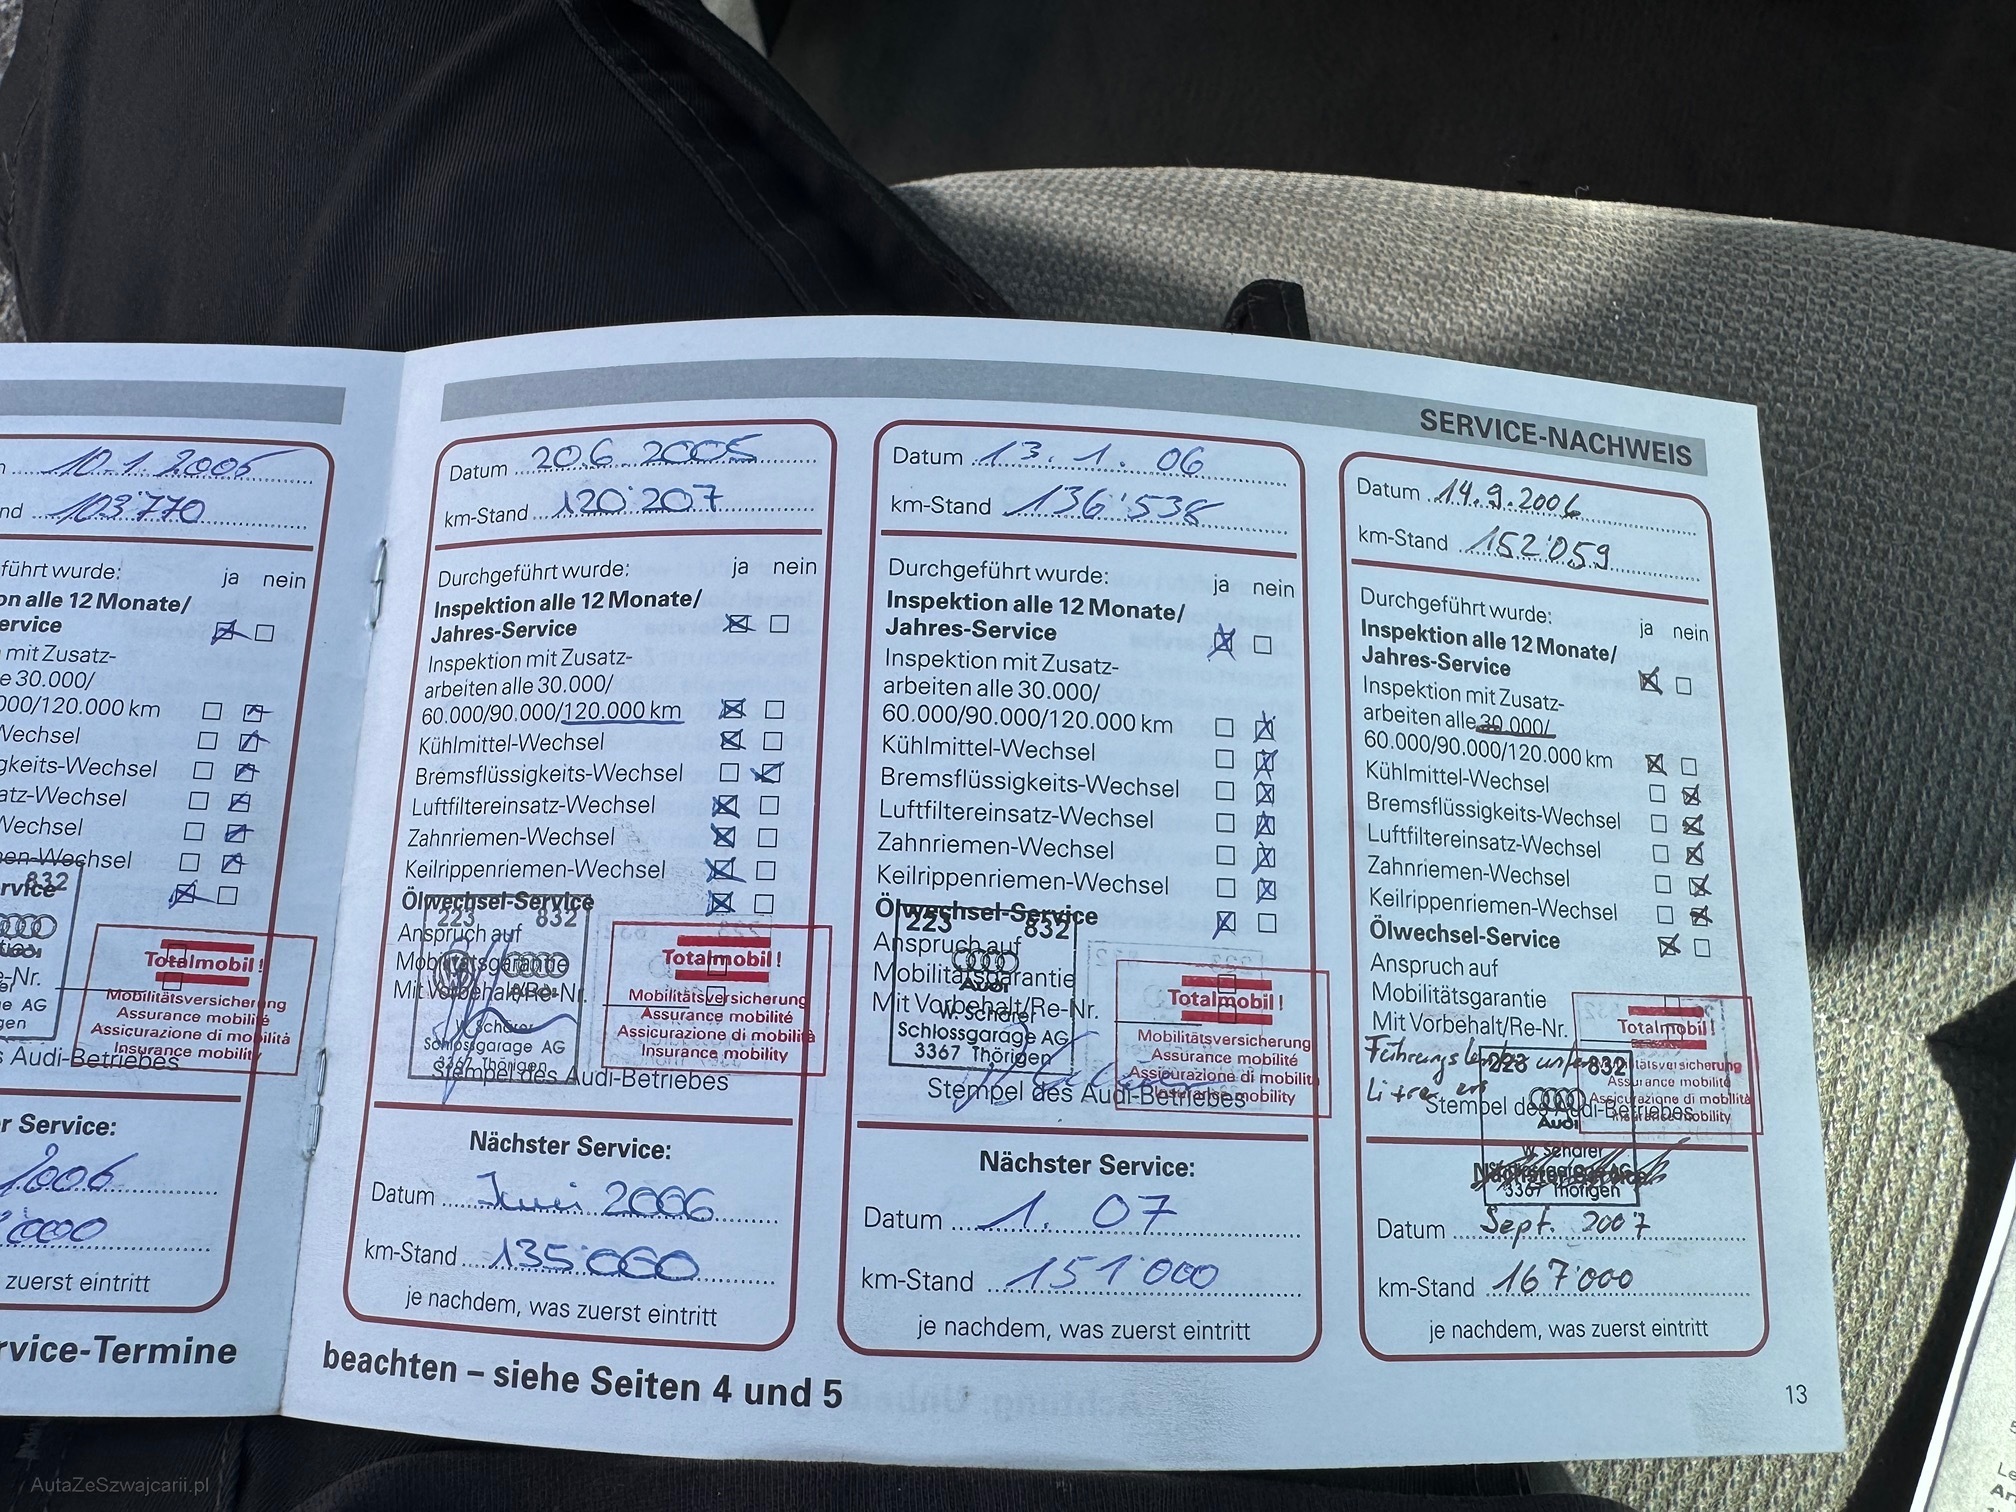 SERVICE-NACHWEIS
10.1.2005
nd 103'770
führt wurde: ja nein
on alle 12 Monate/
ervice
mit Zusatz-
e 30.000/
000/120.000 km
Wechsel
gkeits-Wechsel
atz-Wechsel
Wechsel
en-Wechsel
rvice
832
Audi
e-Nr.
ge AG
gen
Totalmobil!
Mobilitätsversicherung
Assurance mobilité
Assicurazione di mobilità
Insurance mobility
s Audi-Betriebes
r Service:
2006
000
zuerst eintritt
rvice-Termine
Datum 20.6.2005
km-Stand 120'207
Durchgeführt wurde: ja nein
Inspektion alle 12 Monate/
Jahres-Service
Inspektion mit Zusatz-
arbeiten alle 30.000/
60.000/90.000/120.000 km
Kühlmittel-Wechsel
Bremsflüssigkeits-Wechsel
Luftfiltereinsatz-Wechsel
Zahnriemen-Wechsel
Keilrippenriemen-Wechsel
Ölwechsel-Service
Anspruch auf
Mobilitätsgarantie
Mit Vorbehalt/Re-Nr.
223 832
Audi
W. Schärer
Schlossgarage AG
3367 Thörigen
Totalmobil!
Mobilitätsversicherung
Assurance mobilité
Assicurazione di mobilità
Insurance mobility
Stempel des Audi-Betriebes
Nächster Service:
Datum Juni 2006
km-Stand 135'000
je nachdem, was zuerst eintritt
beachten – siehe Seiten 4 und 5
Datum 13.1.06
km-Stand 136'538
Durchgeführt wurde: ja nein
Inspektion alle 12 Monate/
Jahres-Service
Inspektion mit Zusatz-
arbeiten alle 30.000/
60.000/90.000/120.000 km
Kühlmittel-Wechsel
Bremsflüssigkeits-Wechsel
Luftfiltereinsatz-Wechsel
Zahnriemen-Wechsel
Keilrippenriemen-Wechsel
Ölwechsel-Service
Anspruch auf
Mobilitätsgarantie
Mit Vorbehalt/Re-Nr.
223 832
Audi
W. Schärer
Schlossgarage AG
3367 Thörigen
Totalmobil!
Mobilitätsversicherung
Assurance mobilité
Assicurazione di mobilità
Insurance mobility
Stempel des Audi-Betriebes
Nächster Service:
Datum 1. 07
km-Stand 151'000
je nachdem, was zuerst eintritt
Datum 14.9.2006
km-Stand 152'059
Durchgeführt wurde: ja nein
Inspektion alle 12 Monate/
Jahres-Service
Inspektion mit Zusatz-
arbeiten alle 30.000/
60.000/90.000/120.000 km
Kühlmittel-Wechsel
Bremsflüssigkeits-Wechsel
Luftfiltereinsatz-Wechsel
Zahnriemen-Wechsel
Keilrippenriemen-Wechsel
Ölwechsel-Service
Anspruch auf
Mobilitätsgarantie
Mit Vorbehalt/Re-Nr.
223 832
Audi
W. Schärer
Schlossgarage AG
3367 Thörigen
Totalmobil!
Mobilitätsversicherung
Assurance mobilité
Assicurazione di mobilità
Insurance mobility
Stempel des Audi-Betriebes
Nächster Service:
Datum Sept. 2007
km-Stand 167'000
je nachdem, was zuerst eintritt
13
AutaZeSzwajcarii.pl